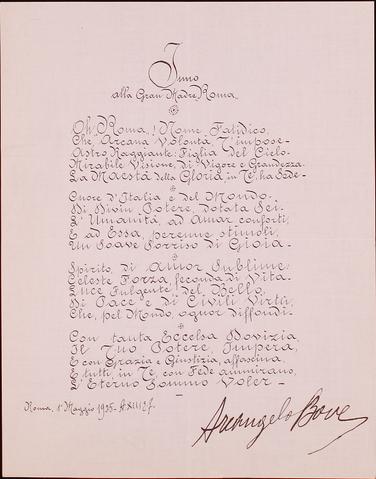 Inno
alla Gran Madre, Roma.
Oh, Roma,! Nome Fatidico,
Che, Arcana Volontà, T'impose-
Astro Raggiante: Figlia del Cielo.
Mirabile Visione, di Vigore e Grandezza.
La Maestà della Gloria, in Te, ha Sede-
Cuore d'Italia e del Mondo.
Di Divin Potere, dotata Sei-
L'Umanità, ad Amar conforti,
E ad Essa, perenne stimoli,
Un Soave Sorriso di Gioia-
Spirito, di Amor Sublime:
Celeste Forza, feconda di Vita.
Luce Fulgente del Bello,
Di Pace e di Civili Virtù,
Che, pel Mondo, ognor diffondi-
Con tanta Eccelsa Dovizia,
Il Tuo Potere, Impera,
E con Grazia e Giustizia, affascina.
E tutti, in Te, con Fede ammirano,
L'Eterno Sommo Voler-
Roma, 1° Maggio 1935-
Arcangelo Bove